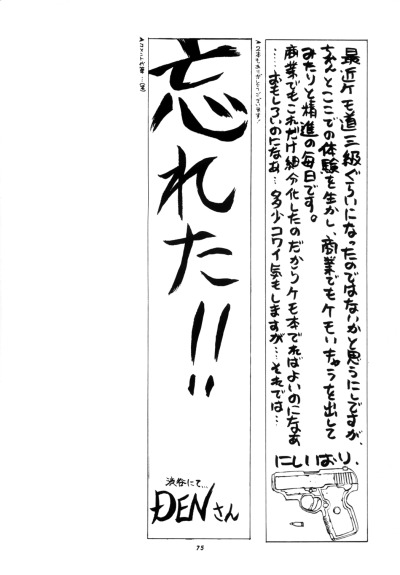 最近ケモ道三級ぐらいになったのではないかと思うにしですが、
ちゃんとここでの体験を生かし、商業でもケモいキャラを出して
みたりと精進の毎日です。
商業でもこれだけ細分化したのだからケモ本でればよいのになあ
……おもしろいのになあ…多少コワイ気もしますが…それでは…
にしいおり.
忘れた!!
渋谷にて…
DENさん
75